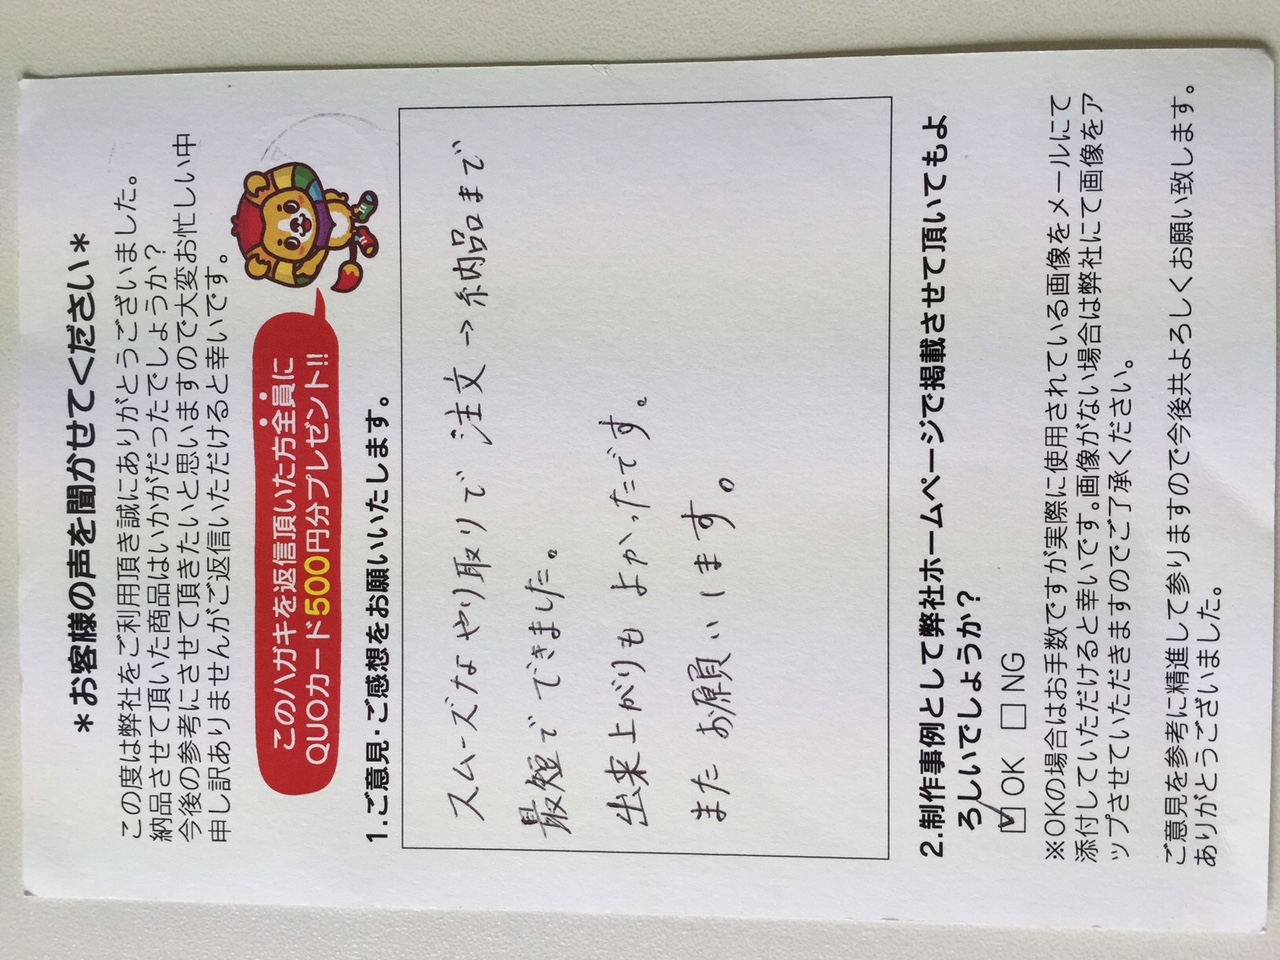 ＊お客様の声を聞かせてください＊
この度は弊社をご利用頂き誠にありがとうございました。
納品させて頂いた商品はいかがだったでしょうか？
今後の参考にさせて頂きたいと思いますので大変お忙しい中
申し訳ありませんがご返信いただけると幸いです。
このハガキを返信頂いた方全員に
QUOカード500円分プレゼント!!
1.ご意見・ご感想をお願いいたします。
スムーズなやり取りで注文→納品まで
最短でできました。
出来上がりもよかったです。
またお願いします。
2.制作事例として弊社ホームページで掲載させて頂いてもよ
ろしいでしょうか？
☑OK □NG
※OKの場合はお手数ですが実際に使用されている画像をメールにて
添付していただけると幸いです。画像がない場合は弊社にて画像をア
ップさせていただきますのでご了承ください。
ご意見を参考に精進して参りますので今後共よろしくお願い致します。
ありがとうございました。